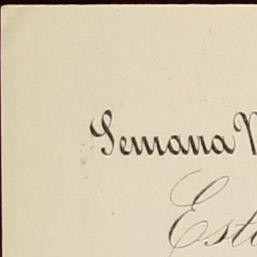 Semana
Est